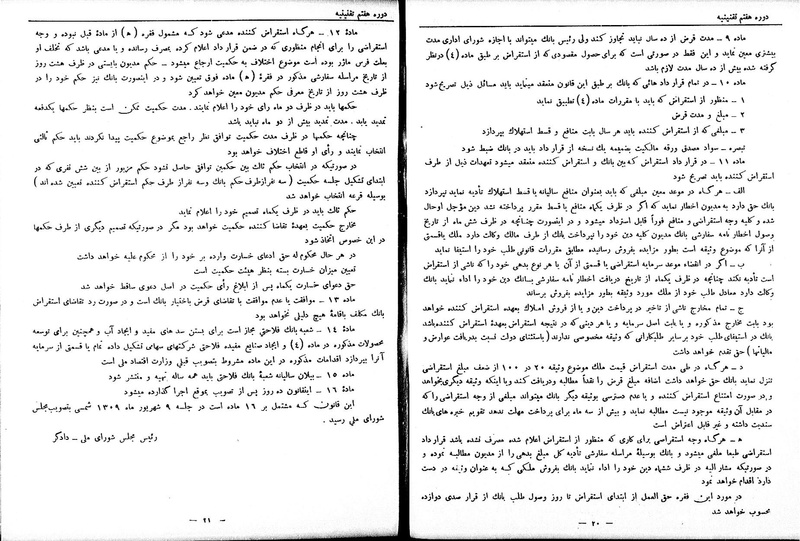 دوره هفتم تقنینیه
ماده ۹ ــ مدت قرض از ده سال نباید تجاوز کند ولی رئیس بانک میتواند با اجازه شورای اداری مدت
بیشتری معین نماید و این فقط در صورتی است که برای حصول مقصودی که از استقراض بر طبق ماده (۴) درنظر
گرفته شده بیش از ده سال مدت لازم باشد
ماده ۱۰ ــ در تمام قرار داد هائی که بانک بر طبق این قانون منعقد مینماید باید مسائل ذیل تصریح شود
۱ ــ منظور از استقراض که باید با مقررات ماده (۴) تطبیق نماید
۲ ــ مبلغ و مدت قرض
۳ ــ مبلغی که از استقراض کننده باید هر سال بابت منافع و قسط استهلاک بپردازد
تبصره ــ سواد مصدق ورقه مالکیت بضمیمه یک نسخه از قرار داد باید در بانک ضبط شود
ماده ۱۱ ــ در قرار داد استقراض که بین بانک و استقراض کننده منعقد میشود تعهدات ذیل از طرف
استقراض کننده باید تصریح شود
الف ــ هرگاه در موعد معین مبلغی که باید بعنوان منافع سالیانه یا قسط استهلاک تأدیه نماید نپردازد
بانک حق دارد به مدیون اخطار نماید که اگر در ظرف یکماه منافع یا قسط مقرر پرداخته نشد دین مؤجل اوحال
شده و کلیه وجه استقراضی و منافع فوراً قابل استرداد میشود و در اینصورت چنانچه در ظرف شش ماه از تاریخ
وصول اخطار نامه سفارشی بانک مدیون کلیه دین خود را نپرداخت بانک از طرف مالک وکالت دارد ملک یاقسمتی
از آنرا که موضوع وثیقه است بطور مزایده بفروش رسانیده مطابق مقررات قانونی طلب خود را استیفا نماید
ب ــ اگر در انقضاء موعد سرمایه استقراضی یا قسمتی از آن یا هر نوع بدهی خود را که ناشی از استقراض
است تأدیه نکند چنانچه در ظرف یکماه از تاریخ دریافت اخطار نامه سفارشی بانک دین خود را اداء نماید بانک
وکالت دارد معادل طلب خود از ملک مورد وثیقه بطور مزایده بفروش برساند
ج ــ تمام مخارج ناشی از تاخیر در پرداخت دین و یا از فروش املاک بعهده استقراض کننده خواهد
بود بابت مخارج مذکوره و یا بابت اصل سرمایه و یا هر دینی که در نتیجه استقراض بعهدۀ استقراض کننده باشد
بانک در استیفای طلب خود بر سایر طلبکارانی که وثیقه مخصوصی ندارند (باستثنای دولت نسبت بدریافت عوارض و
مالیاتها ) حق تقدم خواهد داشت
د ــ هرگاه در طی مدت استقراض قیمت ملک موضوع وثیقه ۲۰ در ۱۰۰ از ضعف مبلغ استقراضی
تنزل نماید بانک حق خواهد داشت اضافه مبلغ قرض را نقداً مطالبه و دریافت کند و یا اینکه وثیقه دیگری بخواهد
و در صورت امتناع استقراض کننده و یا عدم دسترسی بوثیقه دیگر بانک میتواند مبلغی از وجه استقراضی را که
در مقابل آن وثیقه موجود نیست مطالبه نماید و بیش از سه ماه برای پرداخت مهلت ندهد تقویم خبره های بانک
سندیت داشته و غیر قابل اعتراض است
ه ــ هرگاه وجه استقراضی برای کاری که منظور از استقراض اعلام شده مصرف نشده باشد قرار داد
استقراضی طبعا ملغی میشود و بانک بوسیلۀ مراسله سفارشی تأدیه کل مبلغ بدهی را از مدیون مطالبه نموده و
در صورتیکه مشار الیه در ظرف ششماه دین خود را اداء نماید بانک بفروش ملکی که به عنوان وثیقه در دست
دارد اقدام خواهد نمود
در مورد این فقره حق العمل از ابتدای استقراض تا روز وصول طلب بانک از قرار صدی دوازده
محسوب خواهد شد
ــ ۲۰ ــ
دوره هفتم تقنینیه
ماده ۱۲ ــ هرگاه استقراض کننده مدعی شود که مشمول فقره (ه) از مادۀ قبل نبوده و وجه
استقراضی را برای انجام منظوری که در ضمن قرار داد اعلام کرده بمصرف رسانده و یا مدعی باشد که تخلف او
بعلت فرس ماژور بوده است موضوع اختلاف به حکمیت ارجاع میشود ــ حکم مدیون بایستی در ظرف هشت روز
از تاریخ مراسله سفارشی مذکور در فقرۀ (ه) ماده فوق تعیین شود و در اینصورت بانک نیز حکم خود را در
ظرف هشت روز از تاریخ معرفی حکم مدیون معین خواهد کرد
حکمها باید در ظرف دو ماه رای خود را اعلام نمایند . مدت حکمیت ممکن است بنظر حکمها یکدفعه
تمدید یابد . مدت تمدید بیش از دو ماه نباید باشد
چنانچه حکمها در ظرف مدت حکمیت توافق نظر راجع بموضوع حکمیت پیدا نکردند باید حکم ثالثی
انتخاب نمایند و رأی او قاطع اختلاف خواهد بود
در صورتیکه در انتخاب حکم ثالث بین حکمین توافق حاصل نشود حکم مزبور از بین شش نفری که در
ابتدای تشکیل جلسه حکمیت ( سه نفر ازطرف حکم بانک وسه نفراز طرف حکم استقراض کننده تعیین شده اند )
بوسیله قرعه انتخاب خواهد شد
حکم ثالث باید در ظرف یکماه تصمیم خود را اعلام نماید
مخارج حکمیت بعهدۀ تقاضا کننده حکمیت خواهد بود مگر در صورتیکه تصمیم دیگری از طرف حکمها
در این خصوص اتخاذ شود
در هر حال محکوم له حق ادعای خسارت وارده بر خود را از محکوم علیه خواهد داشت
تعیین میزان خسارت بسته بنظر هیئت حکمیت است
حق دعوای خسارت یکماه پس از ابلاغ رأی حکمیت در اصل دعوی ساقط خواهد شد
ماده ۱۳ ــ موافقت یا عدم موافقت با تقاضای قرض باختیار بانک است و در صورت رد تقاضای استقراض
بانک مکلف باقامۀ هیچ دلیلی نخواهد بود
مادۀ ۱۴ ــ شعبه بانک فلاحتی مجاز است برای بستن سد های مفید و ایجاد آب و همچنین برای توسعه
محصولات مذکوره در ماده (۴) و ایجاد صنایع مفیده فلاحتی شرکتهای سهامی تشکیل داده تمام یا قسمتی از سرمایه
آنرا بپردازد اقدامات مذکوره در این ماده مشروط بتصویب قبلی وزارت اقتصاد ملی است
ماده ۱۵ ــ بیلان سالیانه شعبۀ بانک فلاحتی باید همه ساله تهیه و منتشر شود
مادۀ ۱۶ ــ اینقانون ده روز پس از تصویب بموقع اجرا گذارده میشود
این قانون که مشتمل بر ۱۶ ماده است در جلسه ۹ شهریور ماه ۱۳۰۹ شمسی بتصویب مجلس
شورای ملی رسید .
رئیس مجلس شورای ملی ــ دادگر
ــ ۲۱ ــ